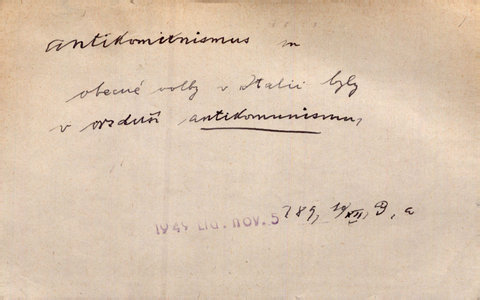 antikomunismus m
obecné volby v Italii byly
v ovzduší antikomunismu,
1947 Lid. nov. 5 289, 10/XII, D, a